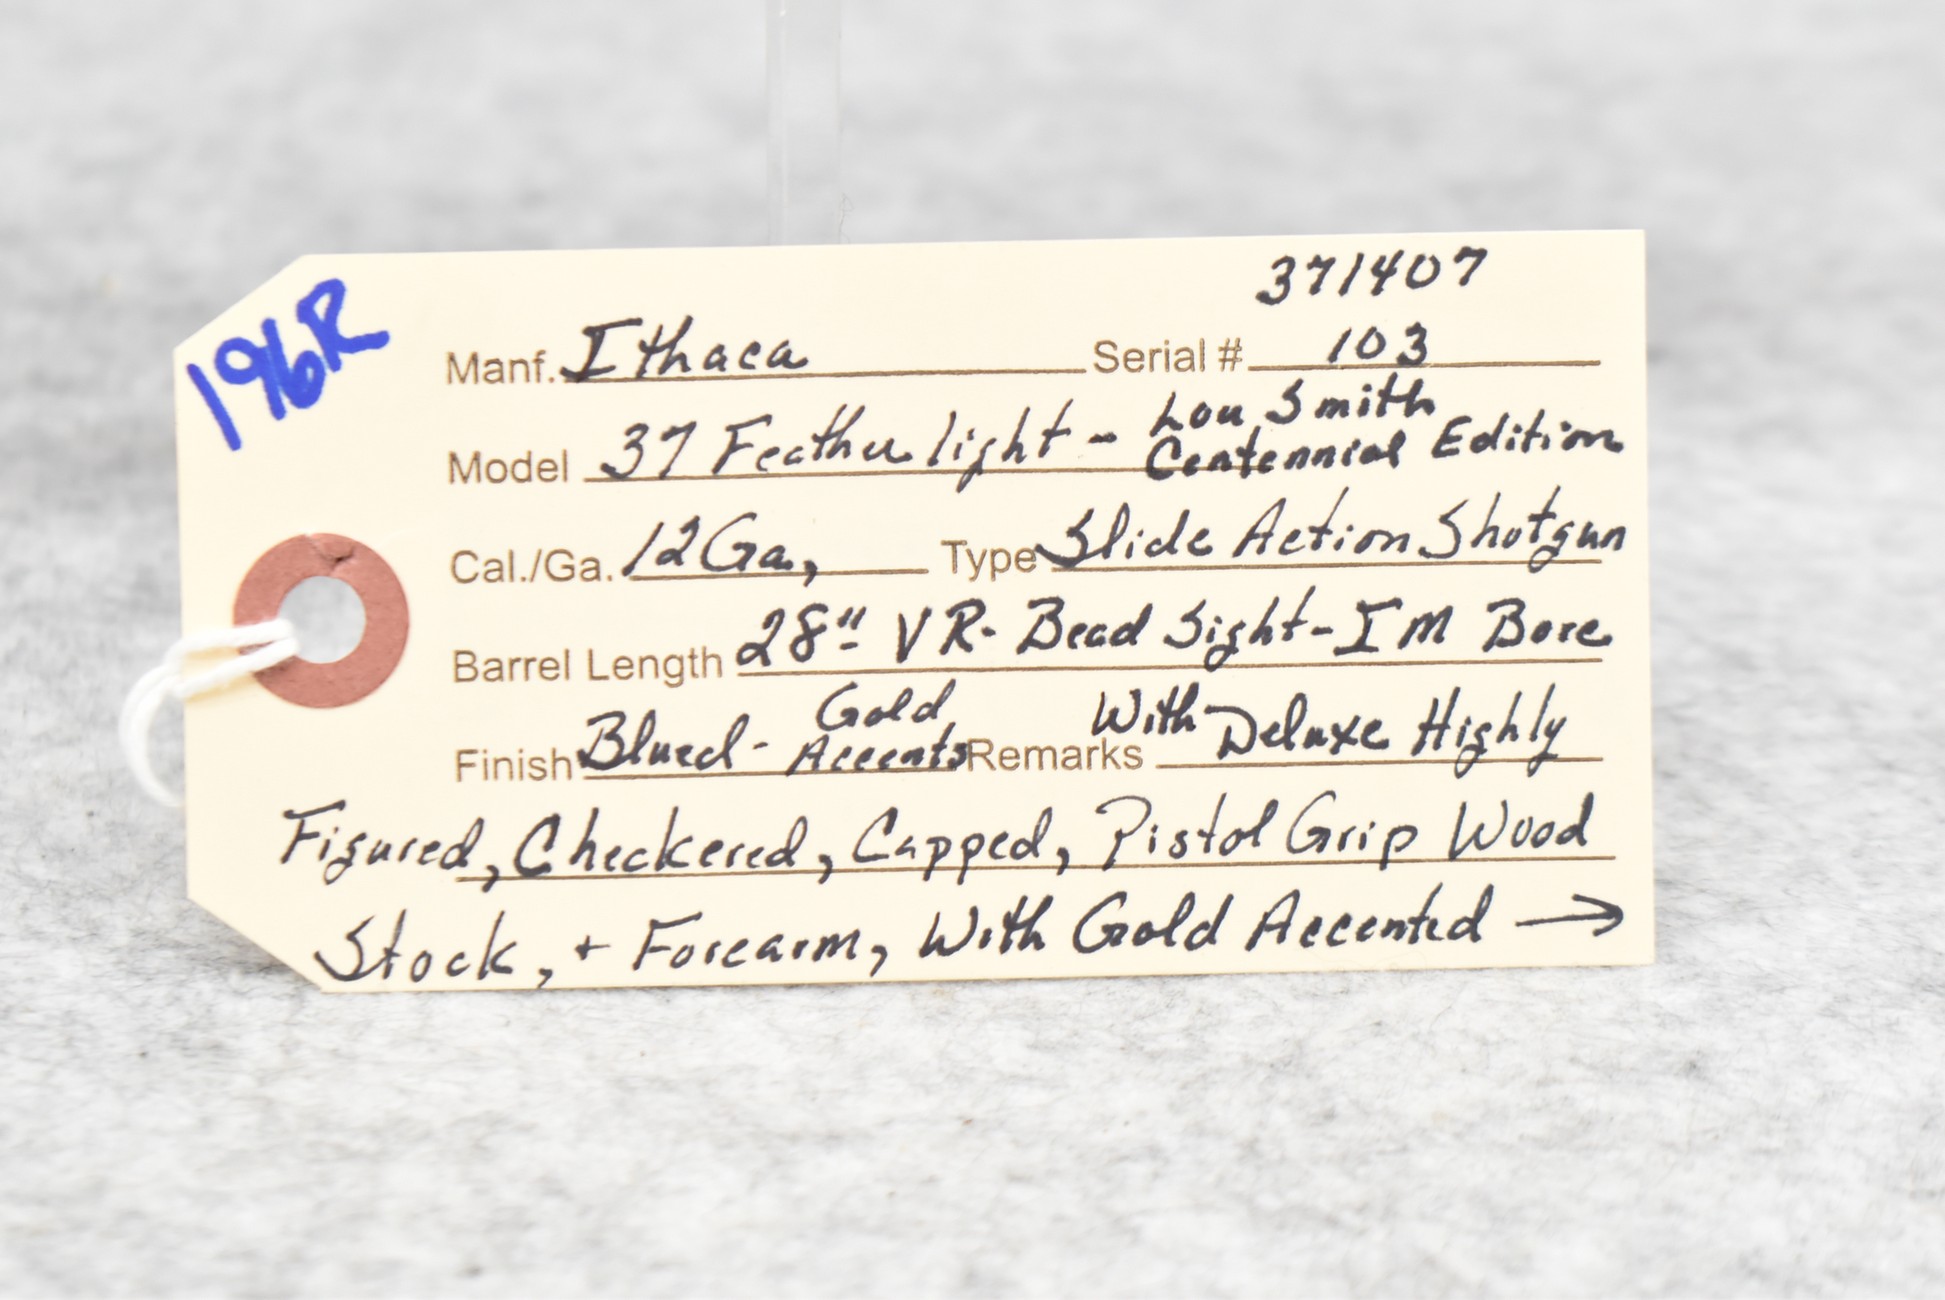 196R
371407
Manf. Ithaca Serial # 103
Model 37 Featherlight - Lou Smith
Centennial Edition
Cal./Ga. 12 Ga, Type Slide Action Shotgun
Barrel Length 28" VR- Bead Sight - IM Bore
Finish Blued - Gold Accents Remarks With Deluxe Highly
Figured, Checkered, Capped, Pistol Grip Wood
Stock, + Forearm, With Gold Accented →